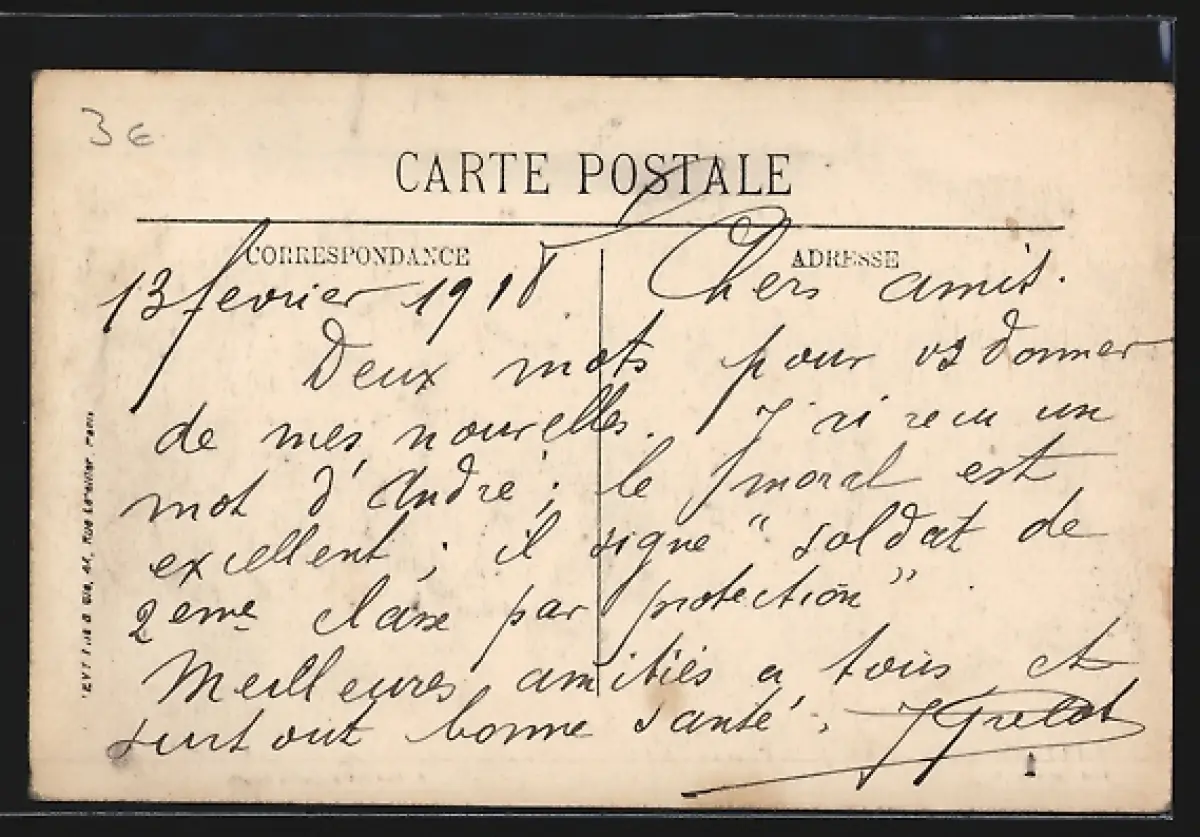 3 €
CARTE POSTALE
CORRESPONDANCE
ADRESSE
13 fevrier 1918. Chers amis.
Deux mots pour vs donner
de mes nouvelles. J'ai recu un
mot d'André ; le moral est
excellent ; il signe "soldat de
2ème classe par protection"
Meilleures amitiés a tous et
surtout bonne santé.
Rue Letellier, Paris
1